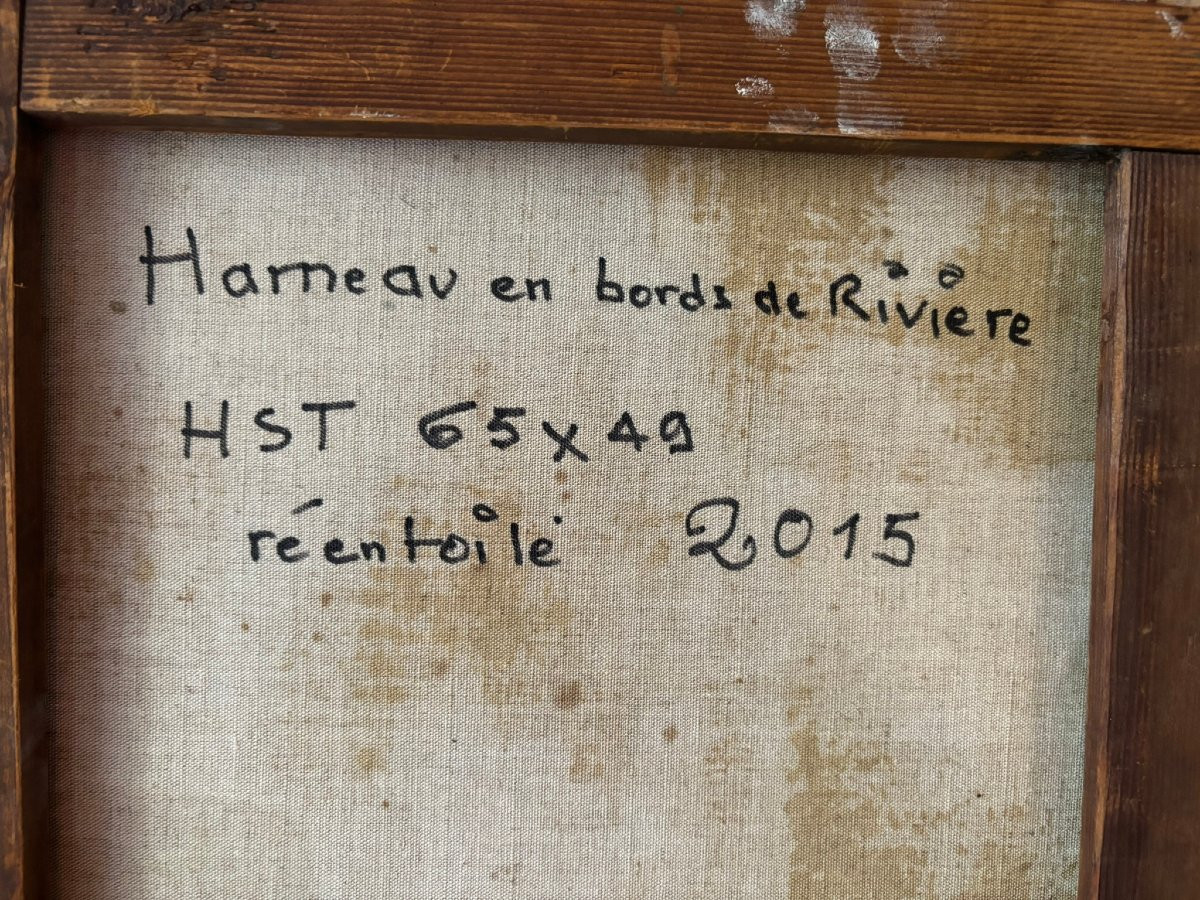 Hameau en bords de Rivière
HST 65x49
réentoilé 2015